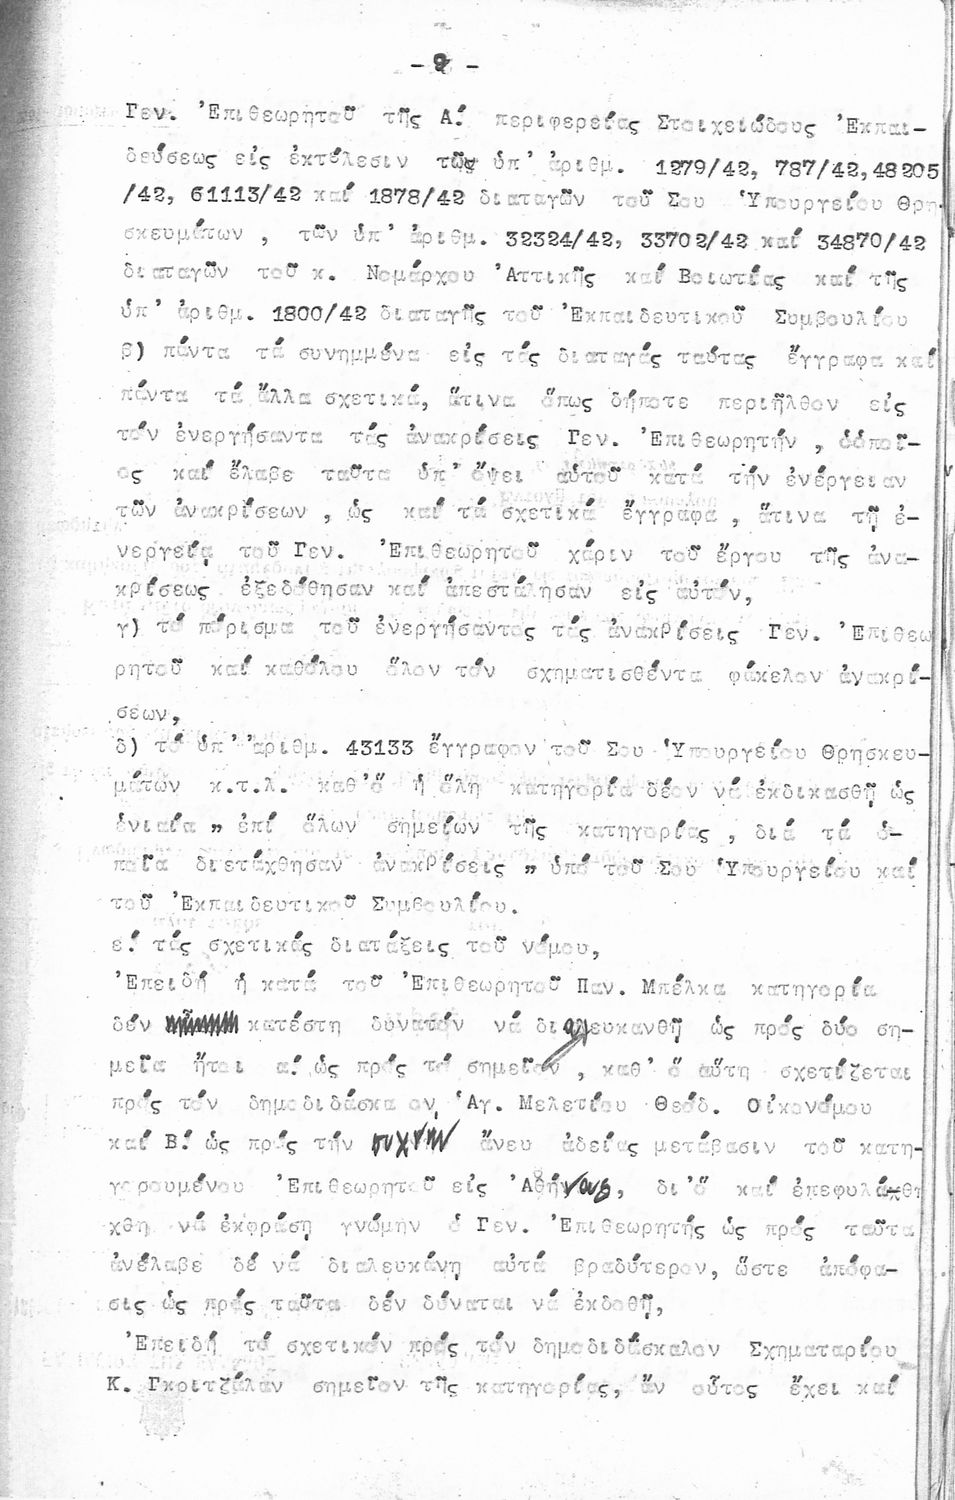 - 9 -
Γεν. Ἐπιθεωρητοῦ τῆς Α΄. περιφερείας Στοιχειώδους Ἐκπαι-
δεύσεως εἰς ἐκτέλεσιν τῶν ὑπ' ἀριθμ. 1279/42, 787/42,48205
/42, 61113/42 καί 1878/42 διαταγῶν τοῦ Σου Ὑπουργείου Θρη-
σκευμάτων , τῶν ὑπ' ἀριθμ. 32324/42, 33702/42 καί 34870/42
διαταγῶν τοῦ κ. Νομάρχου Ἀττικῆς καί Βοιωτίας καί τῆς
ὑπ' ἀριθμ. 1800/42 διαταγῆς τοῦ Ἐκπαιδευτικοῦ Συμβουλίου
β) πάντα τά συνημμένα εἰς τάς διαταγάς ταύτας ἔγγραφα καί
πάντα τά ἄλλα σχετικά, ἅτινα ὅπως δήποτε περιῆλθον εἰς
τόν ἐνεργήσαντα τάς ἀνακρίσεις Γεν. Ἐπιθεωρητήν , ὁὁποῖ-
ος καί ἔλαβε ταῦτα ὑπ' ὄψει αὐτοῦ κατά τήν ἐνέργειαν
τῶν ἀνακρίσεων , ὡς καί τά σχετικά ἔγγραφα , ἅτινα τῇ ἐ-
νεργείᾳ τοῦ Γεν. Ἐπιθεωρητοῦ χάριν τοῦ ἔργου τῆς ἀνα-
κρίσεως ἐξεδόθησαν καί ἀπεστάλησαν εἰς αὐτόν,
γ) τό πόρισμα τοῦ ἐνεργήσαντος τάς ἀνακρίσεις Γεν. Ἐπιθεω
ρητοῦ καί καθόλου ὅλον τόν σχηματισθέντα φάκελον ἀνακρί-
σεων,
δ) τό ὑπ' ἀριθμ. 43133 ἔγγραφον τοῦ Σου Ὑπουργείου Θρησκευ-
μάτων κ.τ.λ. καθ'ὅ ἡ ὅλη κατηγορία δέον νά ἐκδικασθῇ ὡς
ἑνιαία " ἐπί ὅλων σημείων τῆς κατηγορίας , διά τά ὁ-
ποῖα διετάχθησαν ἀνακρίσεις " ὑπό τοῦ Σου Ὑπουργείου καί
τοῦ Ἐκπαιδευτικοῦ Συμβουλίου.
ε΄. τάς σχετικάς διατάξεις τοῦ νόμου,
Ἐπειδή ἡ κατά τοῦ Ἐπιθεωρητοῦ Παν. Μπέλκα κατηγορία
δέν κατέστη δυνατόν νά διαλευκανθῇ ὡς πρός δύο ση-
μεῖα ἤτοι α΄. ὡς πρός τό σημεῖον , καθ' ὅ αὕτη σχετίζεται
πρός τόν δημοδιδάσκα ον Ἁγ. Μελετίου Θεόδ. Οἰκονόμου
καί Β΄. ὡς πρός τήν συχνήν ἄνευ ἀδείας μετάβασιν τοῦ κατη-
γορουμένου Ἐπιθεωρητοῦ εἰς Ἀθήνας, δι'ὅ καί ἐπεφυλάχθη
χθη νά ἐκφράσῃ γνώμην ὁ Γεν. Ἐπιθεωρητής ὡς πρός ταῦτα
ἀνέλαβε δέ νά διαλευκάνῃ αὐτά βραδύτερον, ὥστε ἀπόφα-
σις ὡς πρός ταῦτα δέν δύναται νά ἐκδοθῇ,
Ἐπειδή τό σχετικόν πρός τόν δημοδιδάσκαλον Σχηματαρίου
Κ. Γκριτζάλαν σημεῖον τῆς κατηγορίας, ἄν οὗτος ἔχει καί